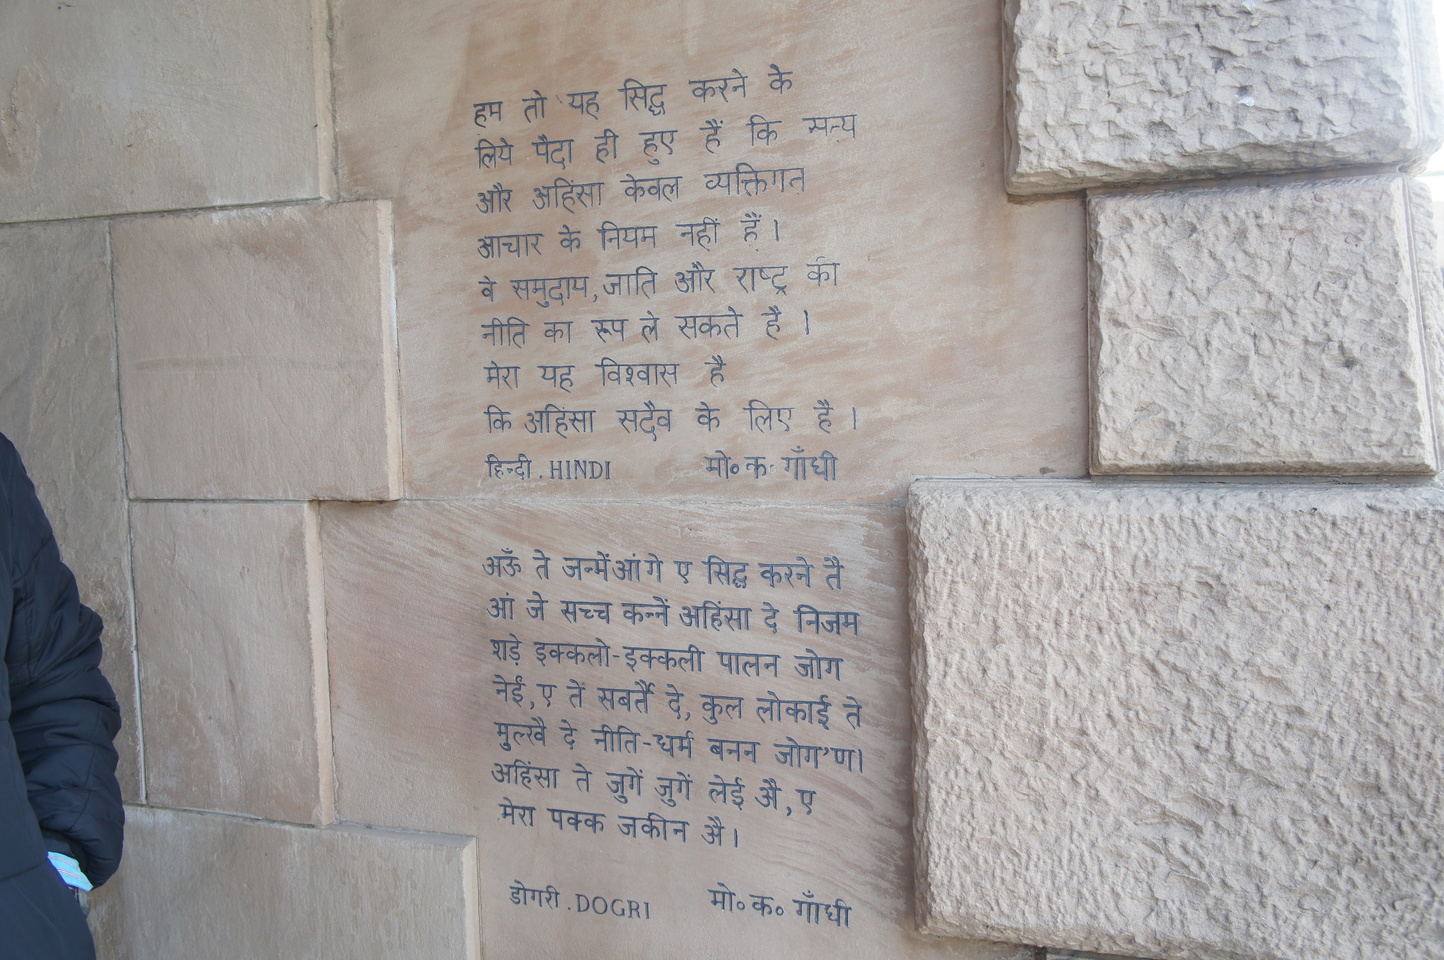 हम तो यह सिद्ध करने के
लिये पैदा ही हुए हैं कि सत्य
और अहिंसा केवल व्यक्तिगत
आचार के नियम नहीं हैं।
वे समुदाय, जाति और राष्ट्र की
नीति का रूप ले सकते है।
मेरा यह विश्वास है
कि अहिंसा सदैव के लिए है।
हिन्दी. HINDI मो॰ क॰ गाँधी
अऊँ ते जन्मेंआंगे ए सिद्ध करने तै
आं जे सच्च कन्नें अहिंसा दे निजम
शड़े इक्कलो-इक्कली पालन जोग
नेईं, ए तें सबर्तै दे, कुल लोकाई ते
मुल्खै दे नीति-धर्म बनन जोग'ण।
अहिंसा ते जुगें जुगें लेई अै, ए
मेरा पक्क जकीन अै।
डोगरी. DOGRI मो॰ क॰ गाँधी